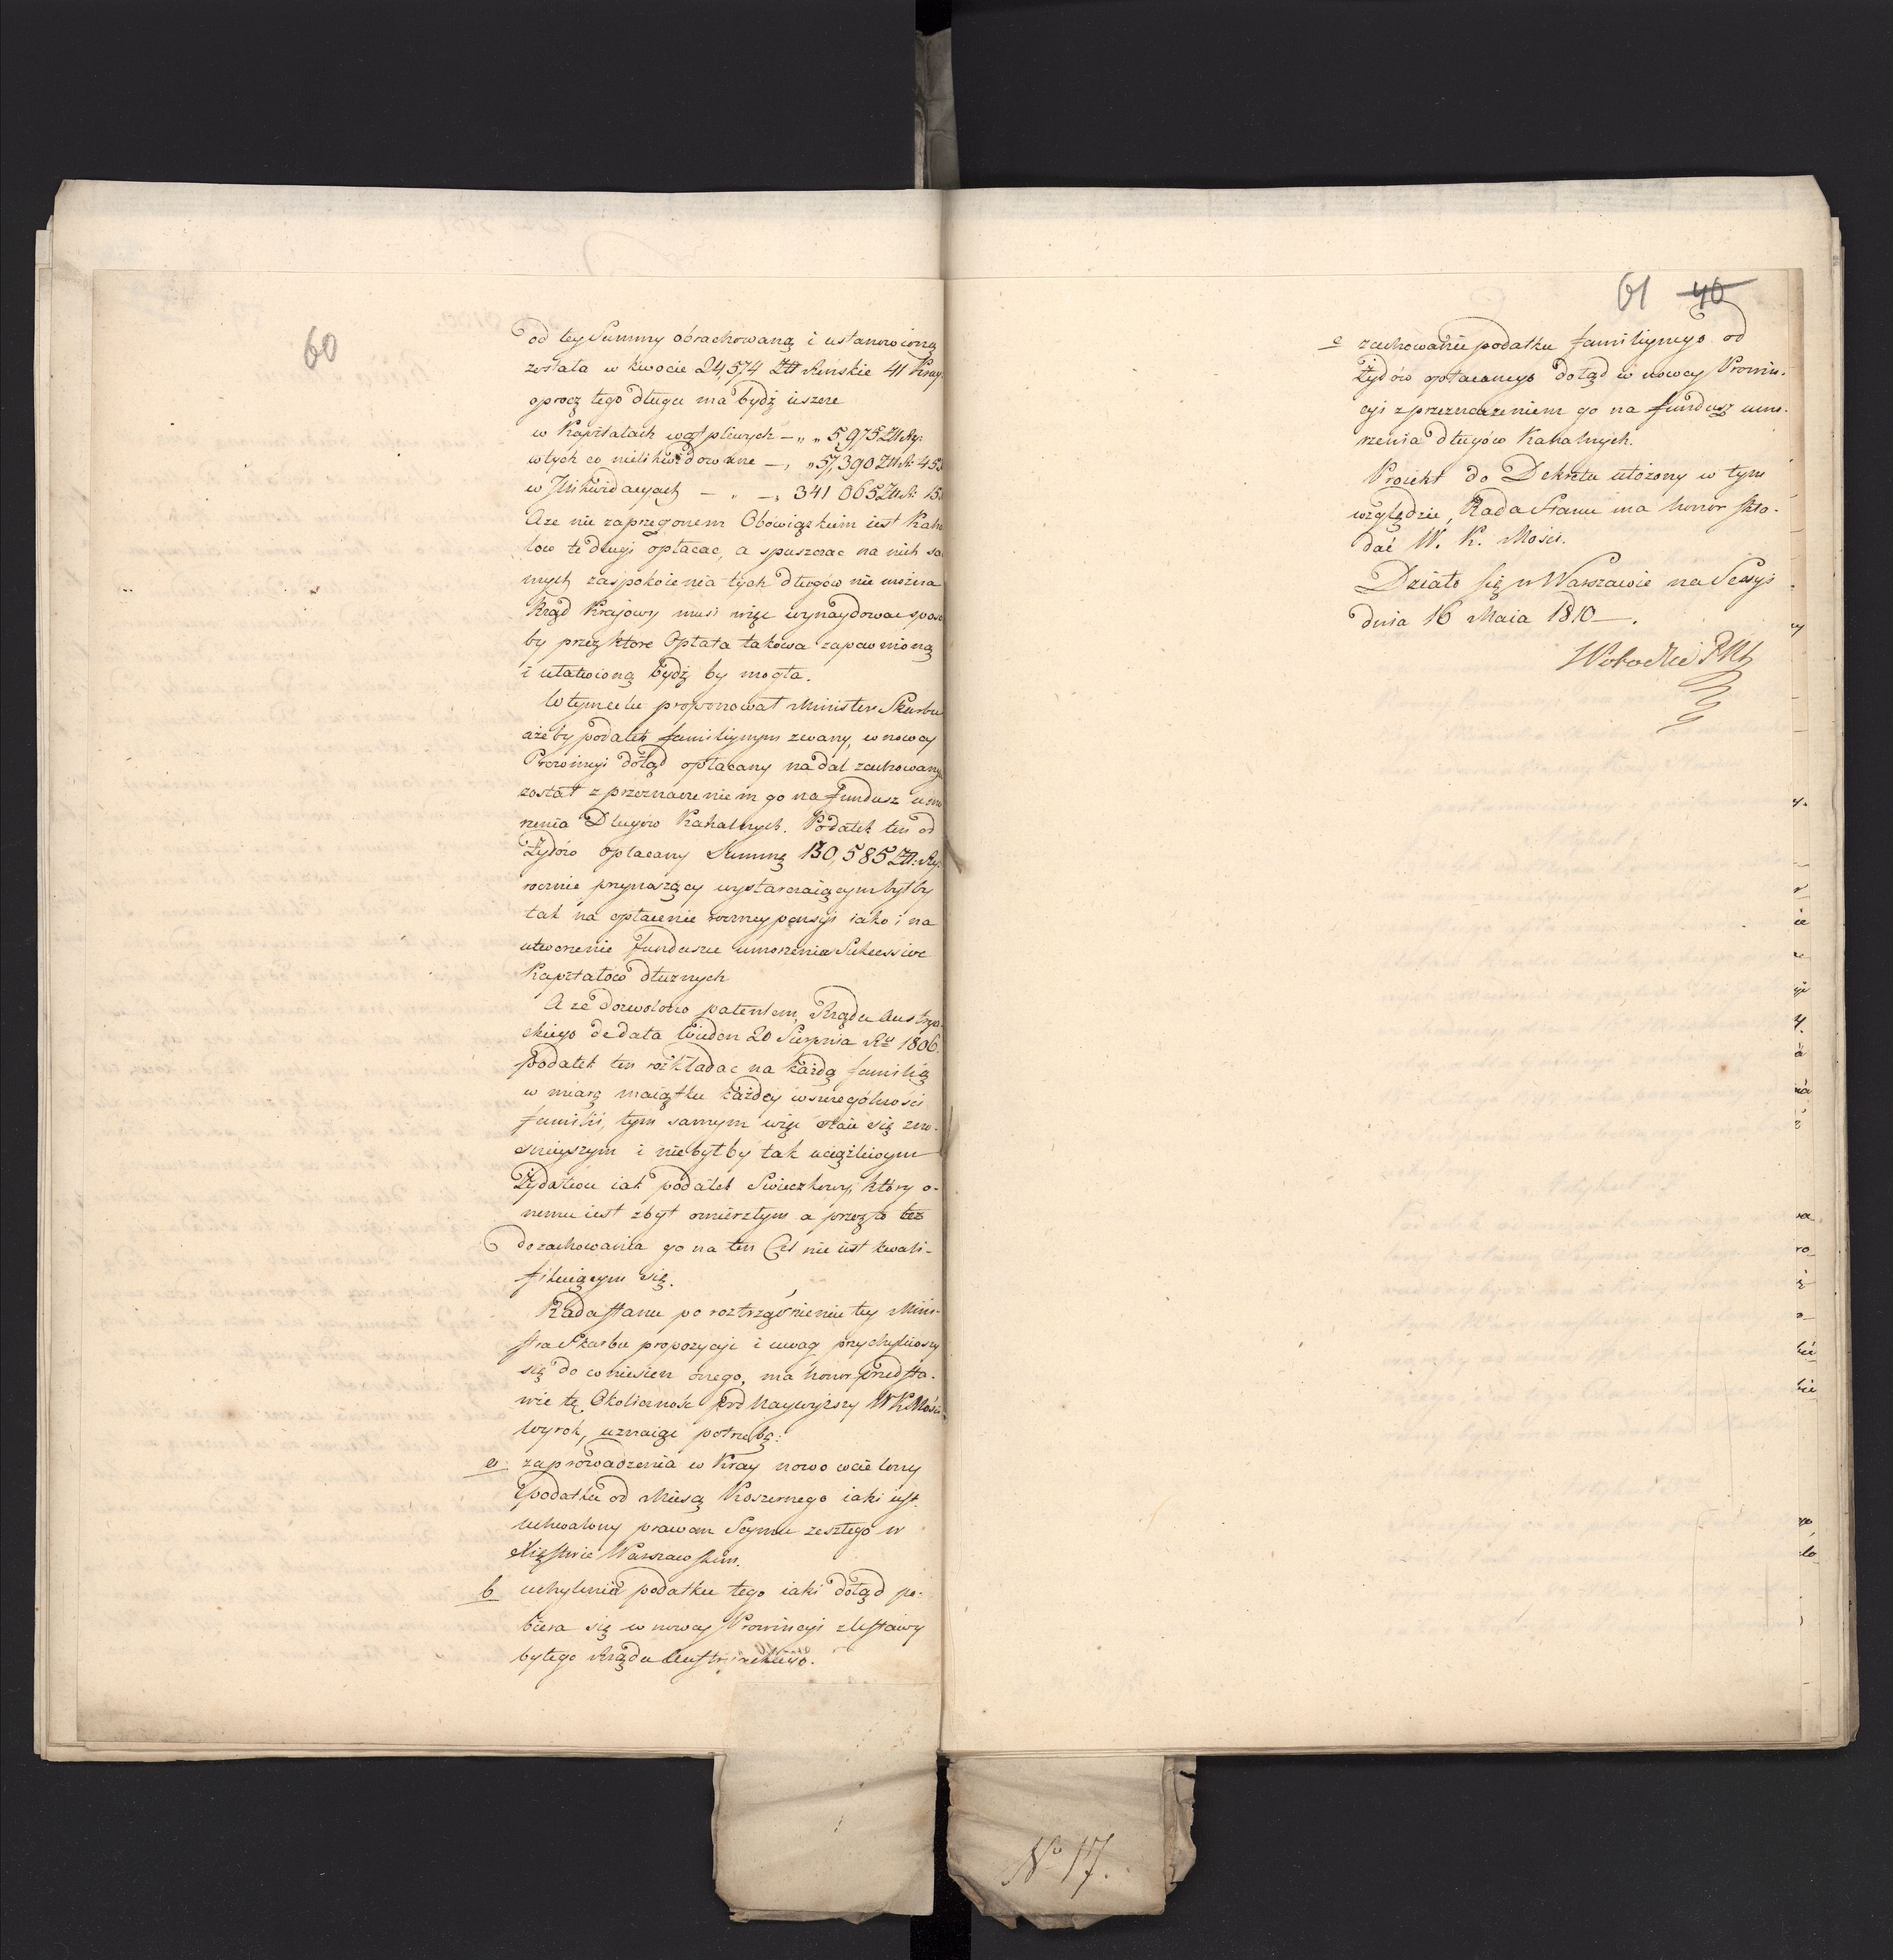 60
od tey Summy obrachowaną i ustanowioną
została w kwocie 24,574 Złt Reńskie 41 Kray.
oprocz tego długu ma bydź ieszcze
w Kapitałach wątpliwych — „ „ 5,975 Złt Ry:
w tych co nielikwidowane — „ „ 57,390 Złt R: 45
w Likwidacyach — „ — „ 341 065 Złt R: 15
A że nie zaprzęgonem Obowiązkiem iest Kaha
łow te długi opłacac, a spuszczac na nich sa
mych zaspokoienia tych długów nie można
Rząd Krajowy musi więc wynaydować sposo
by przez ktore Opłata takowa zapewnioną
i ułatwioną bydź by mogła.
W tym celu proponował Minister Skarbu
ażeby podatek familijnym zwany, w nowey
Prowincyi dotąd opłacany nadal zachowany
został z przeznaczeniem go na fundusz umo
rzenia Długów Kahalnych. Podatek ten od
Żydów opłacany Summę 130,585 Złt: Ry:
rocznie przynoszący wystarczaiącym byłby
tak na opłacenie roczney pensyi iako i na
utworzenie funduszu umorzenia Sukcessive
Kapitałow dłużnych
A że dozwolono patentem Rządu Austrya
ckiego de data Wieden 20 Sierpnia Ru 1806.
podatek ten rozkładac na każdą familię
w miarę maiątku każdey w szczegolności
familii, tym samym więc staie się zno-
snieyszym i nie byłby tak uciążliwym
Żydostwu iak podatek Swieczkowy, który o-
nemu iest zbyt omierzłym a przez to też
do zachowania go na ten Cel nie iest kwali-
fikuiącym się.
Rada Stanu po roztrząśnieniu tey Mini-
stra Skarbu propozycyi i uwag przychyliwszy
się do wniesien onego, ma honor przedsta-
wic tę Okoliczność pod Naywyższy W K Mości
Wyrok, uznaiąc potrzebę:
a zaprowadzenia w Kray nowo wcielony
podatku od Mięsa Koszernego iaki iest
uchwalony prawem Seymu zeszłego w
Xięstwie Warszawskim.
b uchylenia podatku tego iaki dotąd po-
biera się w nowey Prowincyi z Ustawy
byłego Rządu Austriackiego.
61 40
c zachowanie podatku familijnego od
Żydów opłacanego dotąd w nowey Prowin-
cyi z przeznaczeniem go na fundusz umo-
rzenia długów Kahalnych.
Proiekt do Dekretu ułożony w tym
względzie, Rada Stanu ma honor skła-
dać W. K. Mości.
Działo się w Warszawie na Sessyi
dnia 16 Maia 1810 —.
No 17.